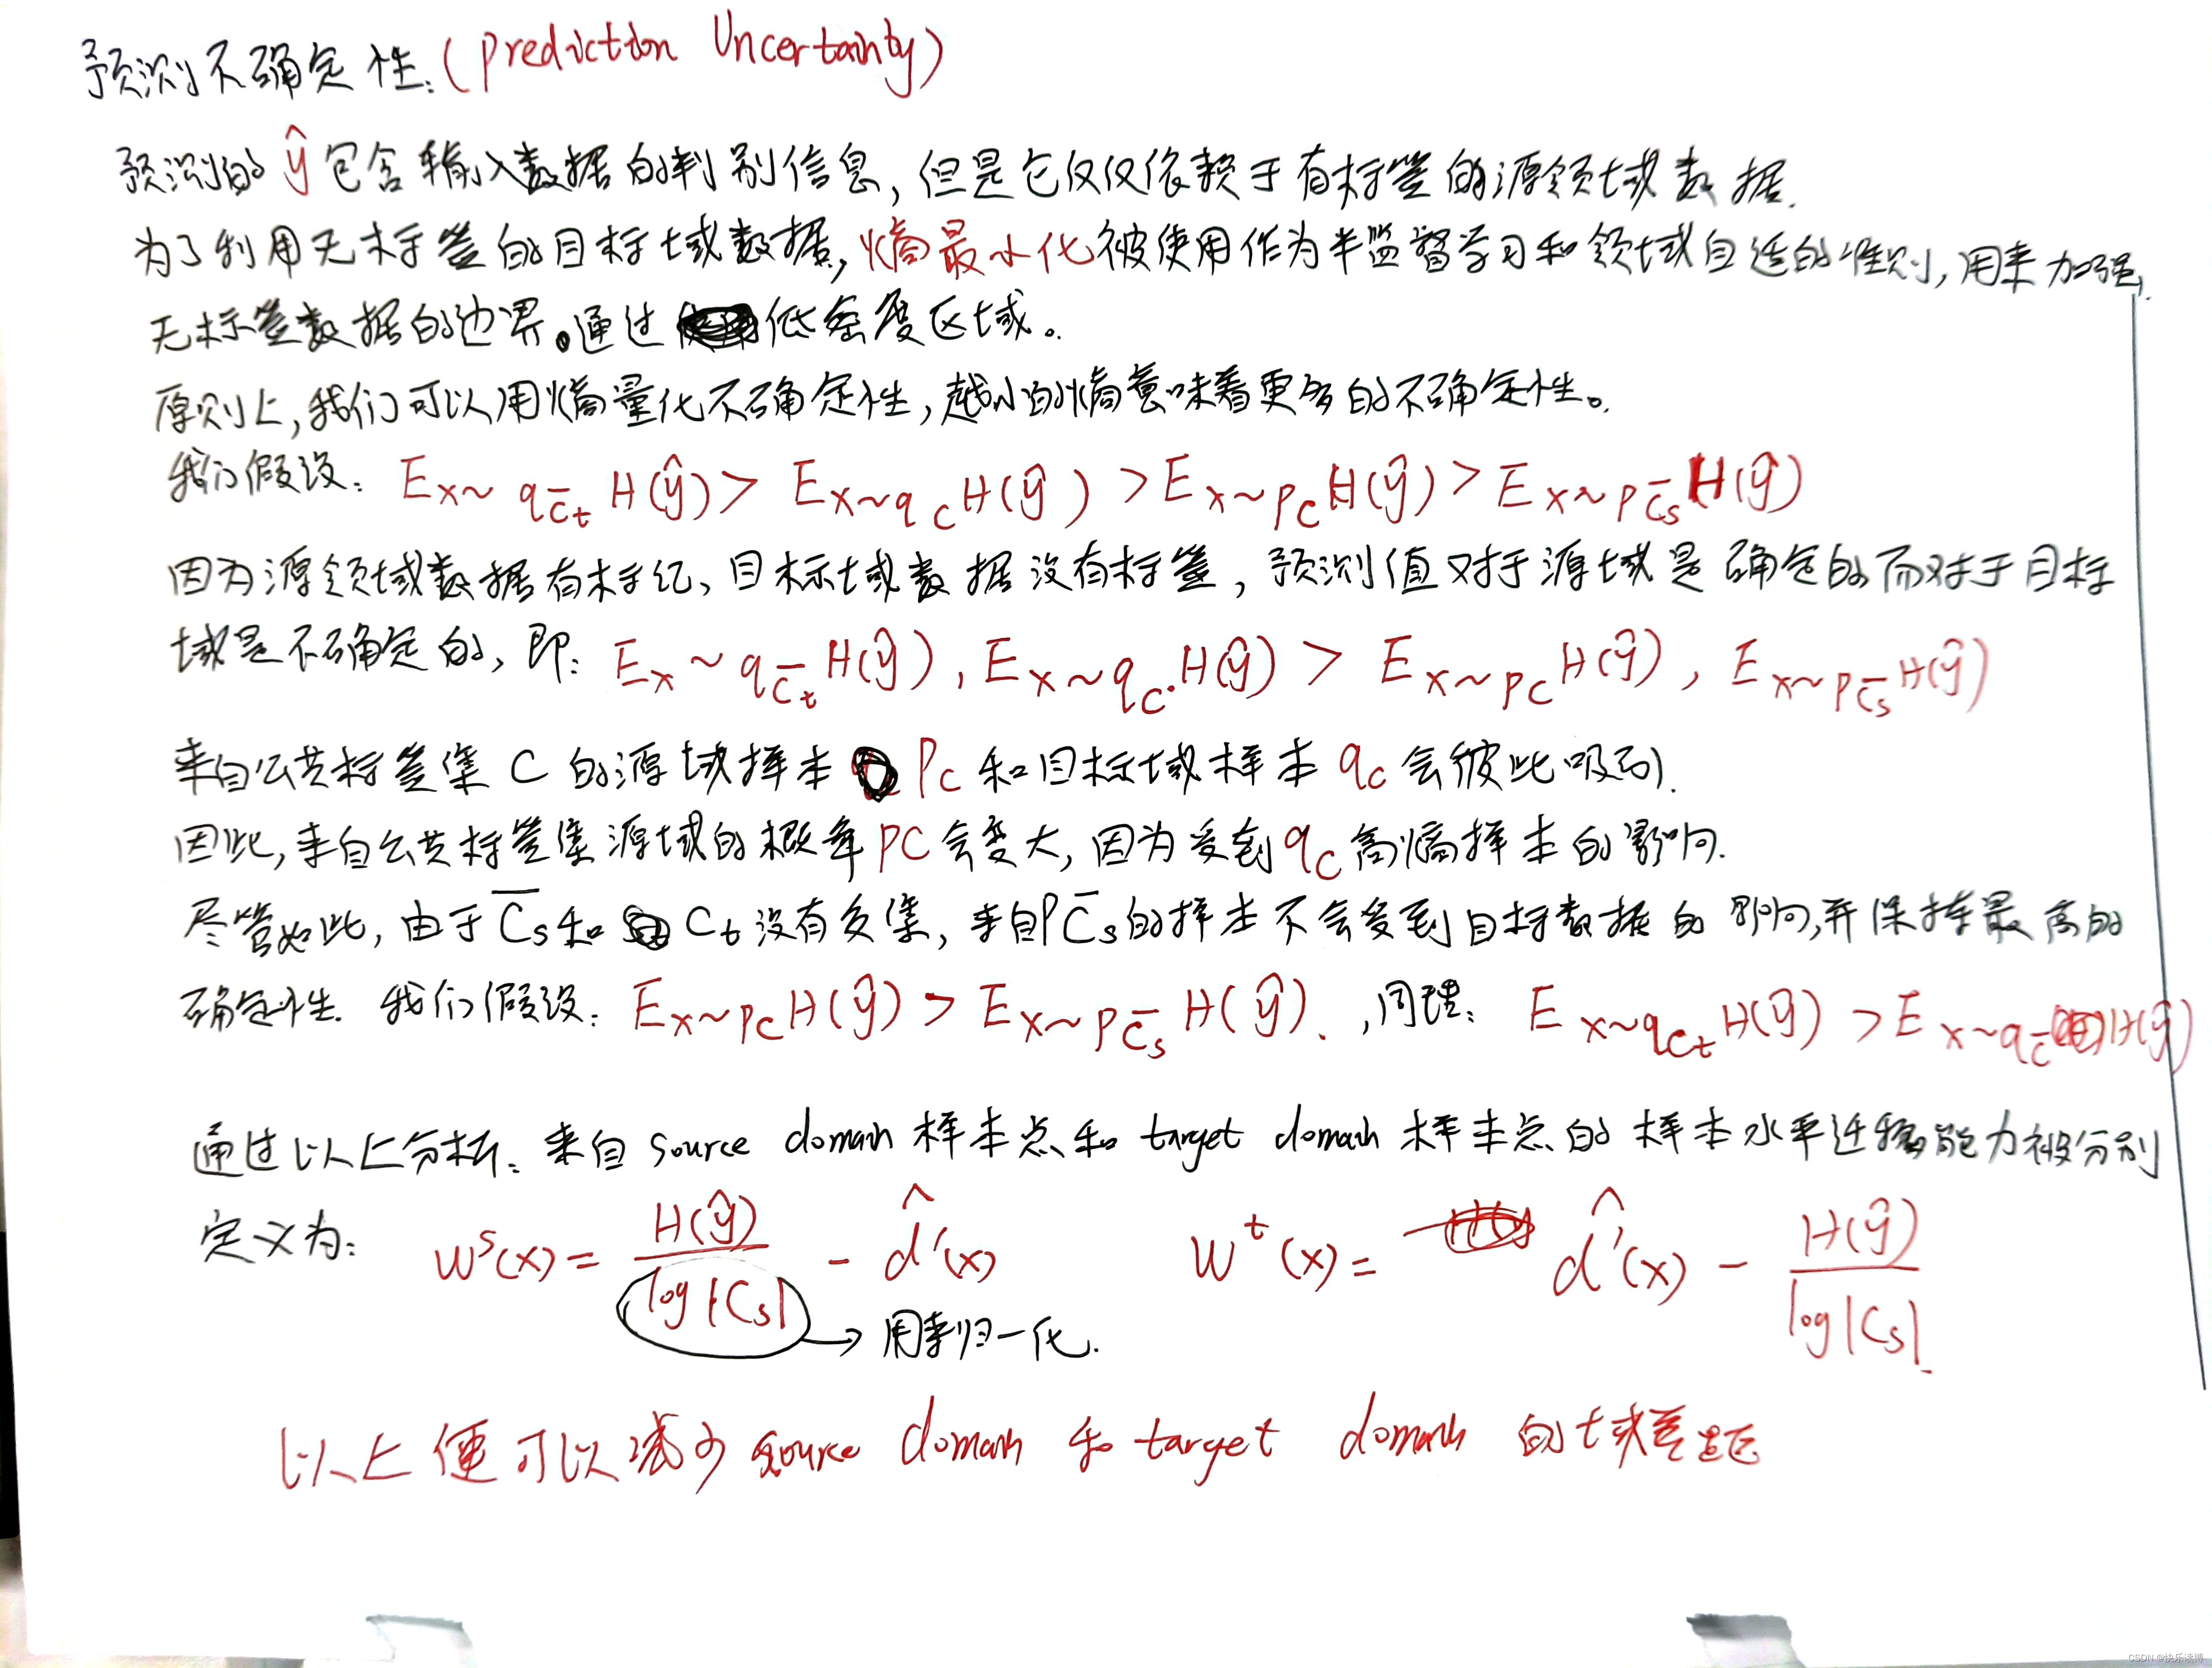 预测不确定性:(prediction Uncertainty)
预测的 ŷ 包含输入数据的判别信息,但是它仅仅依赖于有标签的源领域数据.
为了利用无标签的目标域数据,熵最小化被使用作为半监督学习和领域自适的准则,用来加强
无标签数据的边界。通过低密度区域。
原则上,我们可以用熵量化不确定性,越小的熵意味着更多的不确定性。
我们假设: E_{x~q_{C̄_t}} H(ŷ) > E_{x~q_C} H(ŷ) > E_{x~p_C} H(ŷ) > E_{x~p_{C̄_s}} H(ŷ)
因为源领域数据有标记,目标域数据没有标签,预测值对于源域是确定的而对于目标
域是不确定的,即: E_{x~q_{C̄_t}} H(ŷ), E_{x~q_C} H(ŷ) > E_{x~p_C} H(ŷ), E_{x~p_{C̄_s}} H(ŷ)
来自公共标签集 C 的源域样本 p_C 和目标域样本 q_C 会彼此吸引.
因此,来自公共标签集源域的概率 PC 会变大,因为受到 q_C 高熵样本的影响.
尽管如此,由于 C̄_s 和 C_t 没有交集,来自 P C̄_s 的样本不会受到目标数据的影响,并保持最高的
确定性. 我们假设: E_{x~p_C} H(ŷ) > E_{x~p_{C̄_s}} H(ŷ). ,同理: E_{x~q_{C_t}} H(ŷ) > E_{x~q_{C̄}} H(ŷ)
通过以上分析: 来自 source domain 样本点和 target domain 样本点的样本水平迁移能力被分别
定义为: w^s(x) = H(ŷ) / log|C_s| - d̂'(x) w^t(x) = d̂'(x) - H(ŷ) / log|C_s|.
→ 用来归一化.
以上便可以减少 source domain 和 target domain 的域差距
CSDN @快乐读博